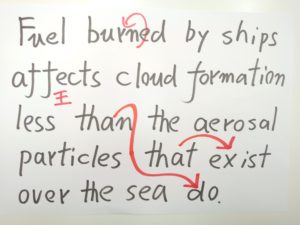 Fuel burned by ships
affects cloud formation
less than the aerosal
particles that exist
over the sea do.